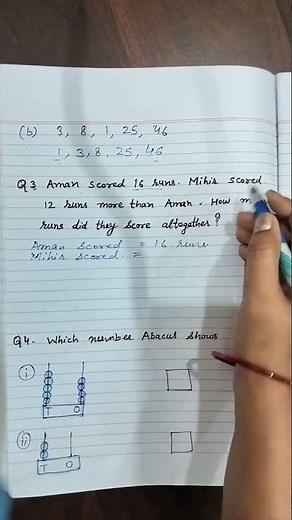 (b) 3, 8, 1, 25, 46
1, 3, 8, 25, 46
Q3 Aman scored 16 runs. Mihir scored
12 runs more than Aman. How
runs did they score altogether?
Aman scored = 16 runs
Mihir scored =
Q4. Which number Abacus shows
(i)
T O
(ii)
T O